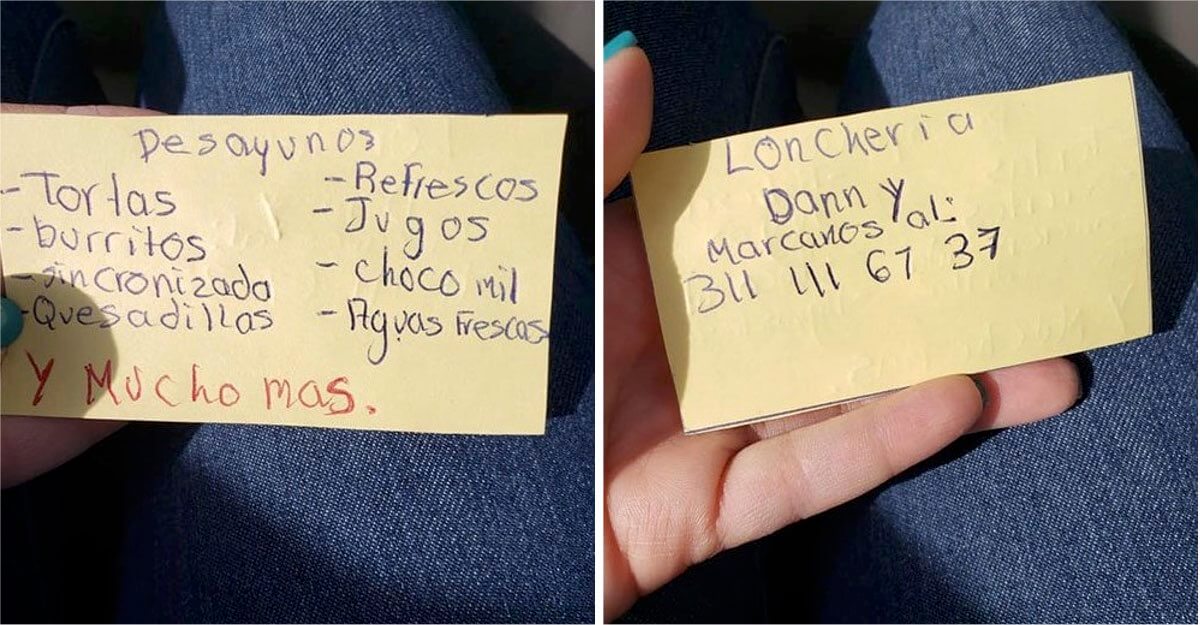 Desayunos
-Tortas
-burritos
-sincronizada
-Quesadillas
-Refrescos
-Jugos
-choco mil
-Aguas Frescas
Y MUcho mas.
LOncheria
Danny
Marcanos al:
311 111 67 37